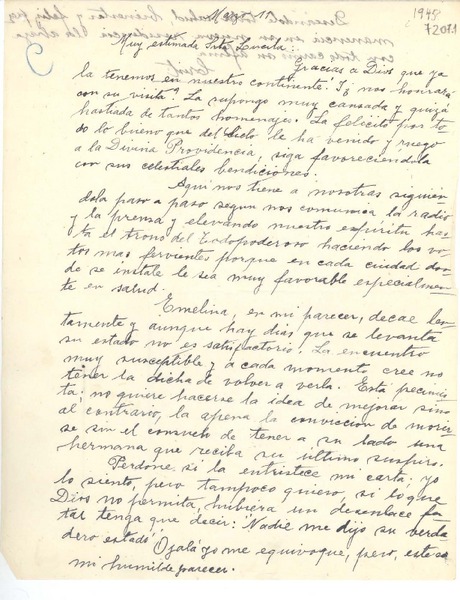 1948
7207.1
Marzo 17
Muy estimada Srta Lucila:
Gracias a Dios que ya
la tenemos en nuestro continente! ¿Y nos honrará
con su visita? La supongo muy cansada y quizá
hastiada de tantos homenajes. La felicito por to-
do lo bueno que del Cielo le ha venido y ruego
a la Divina Providencia, siga favoreciéndola
con sus celestiales bendiciones.
Aquí nos tiene a nosotras siguién
dola paso a paso segun nos comunica la radio
y la prensa y elevando nuestro espíritu has-
ta el trono del Todopoderoso haciendo los vo-
tos mas fervientes porque en cada ciudad don-
de se instale le sea muy favorable especialmen-
te en salud.
Emelina, en mi parecer, decae len-
tamente y aunque hay dias que se levanta
su estado no es satisfactorio. La encuentro
muy susceptible y a cada momento cree no
tener la dicha de volver a verla. Está pesimis-
ta; no quiere hacerse la idea de mejorar sino
al contrario, la apena la convicción de morir-
se sin el consuelo de tener a su lado una
hermana que reciba su ultimo suspiro.
Perdone si la entristece mi carta; yo
lo siento, pero tampoco quiero, si lo que
Dios no permita, hubiera un desenlace fa-
tal tenga que decir: Nadie me dijo su verda
dero estado.
Ojalá yo me equivoque, pero, este es
mi humilde parecer.